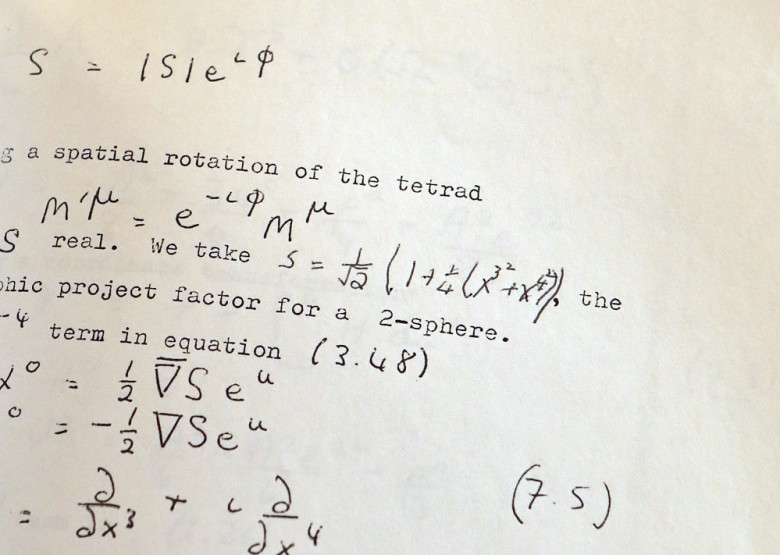 S = |S|e^{iφ}
g a spatial rotation of the tetrad
m'^μ = e^{-iφ} m^μ
S real. We take S = 1/√2 (1+¼(x^{3²}+x^{4²})), the
hic project factor for a 2-sphere.
-4 term in equation (3.48)
° = ½ ∇̄S e^u
° = -½ ∇S e^u
= ∂/∂x³ + i ∂/∂x⁴ (7.5)